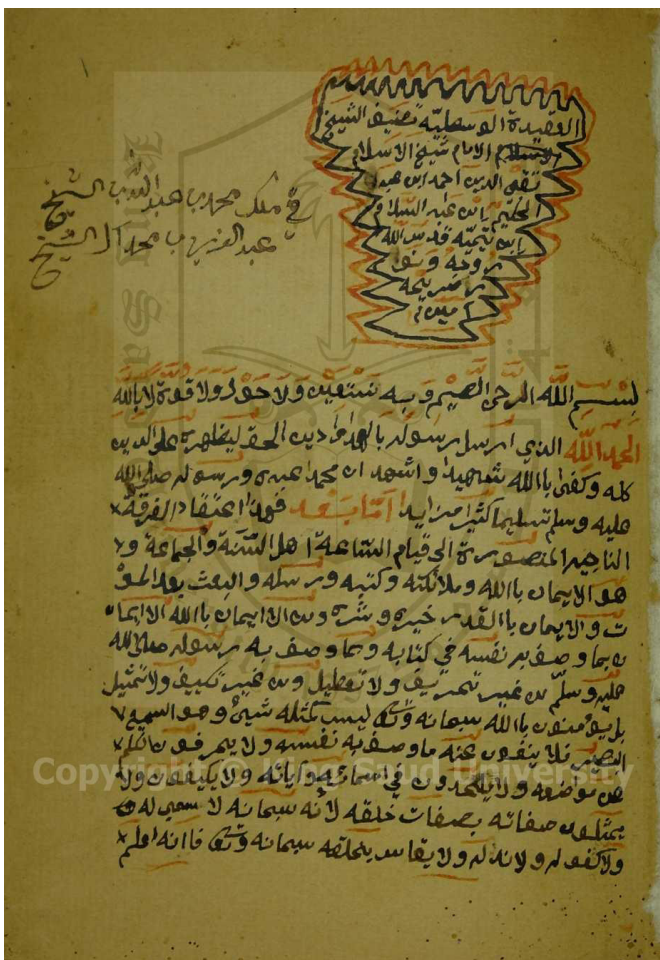 العقيدة الوسطية تصنيف الشيخ
الامام شيخ الاسلام
تقي الدين احمد ابن عبد
الحليم ابن عبد السلام
ابن تيميه قدس الله
روحه ونور
ضريحه
امين
في ملك محمد بن عبد اللطيف الشيخ
عبد العزيز بن محمد ال الشيخ
بسم الله الرحمن الرحيم وبه نستعين ولا حول ولا قوة الا بالله
الحمد لله الذي ارسل رسوله بالهدى ودين الحق ليظهره على الدين
كله وكفى باالله شهيدا واشهد ان محمدا عبده ورسوله صلى الله
عليه وسلم تسليما كثيرا مزايدا اما بعد فهذا اعتقاد الفرقة
الناجيه المنصورة الى قيام الساعة اهل السنة والجماعة و
هو الايمان باالله وملائكته وكتبه ورسله والبعث بعد المو
ت والايمان باالقدر خيره وشره ومن الايمان باالله الايما
ن بما وصف به نفسه في كتابه وبما وصف به رسوله صلى الله
عليه وسلم من غير تحريف ولا تعطيل ومن غير تكييف ولا تمثيل
بل يؤمنون باالله سبحانه وتعالى ليس كمثله شيئ وهو السميع
البصير فلا ينفون عنه ما وصف به نفسه ولا يحرفون الكلم
عن مواضعه ولا يلحدون في اسمائه واياته ولا يكيفون ولا
يمثلون صفاته بصفات خلقه لانه سبحانه لا سمي له
ولا كفو له ولا ند له ولا يقاس بخلقه سبحانه وتعالى فاانه اعلم
Copyright © King Saud University